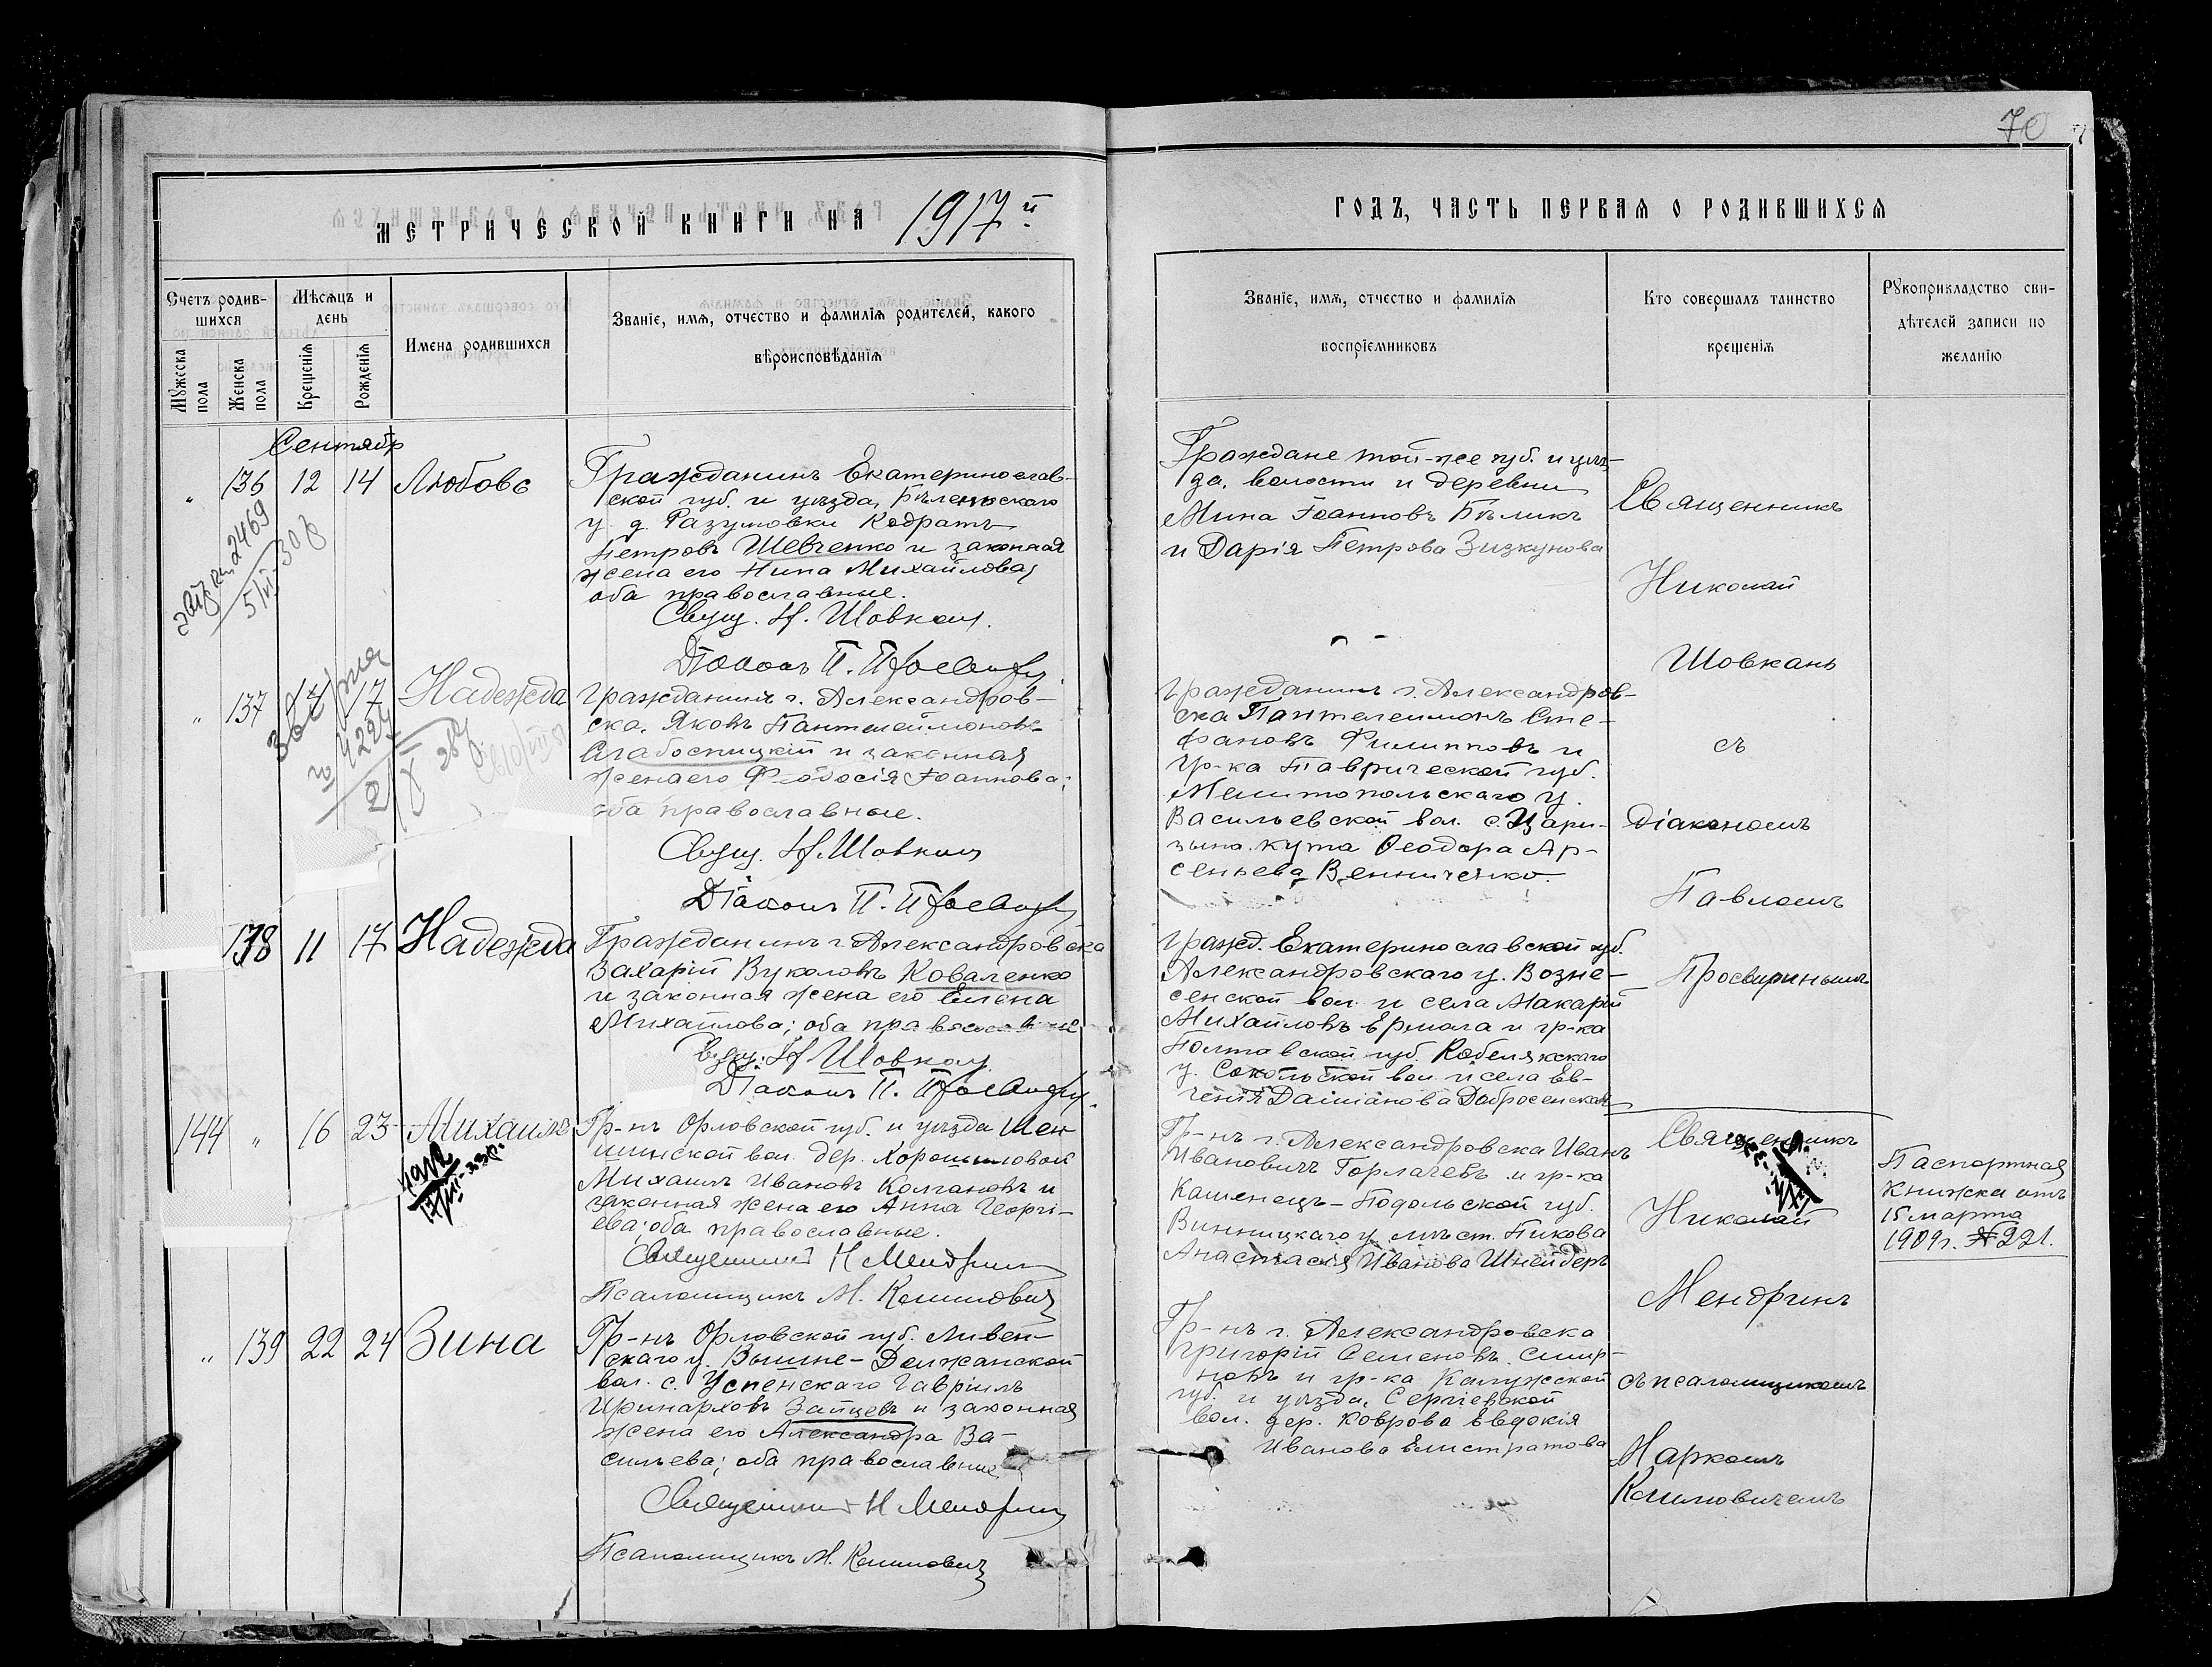 70
МЕТРИЧЕСКОЙ КНИГИ НА 1917й
ГОДЪ, ЧАСТЬ ПЕРВАЯ О РОДИВШИХСЯ
Счетъ родив-
шихся
Мужеска пола
Женска пола
Мѣсяцъ и
день
Крещенія
Рожденія
Имена родившихся
Званіе, имя, отчество и фамилія родителей, какого
вѣроисповѣданія
Званіе, имя, отчество и фамилія
воспріемниковъ
Кто совершалъ таинство
крещенія
Рукоприкладство сви-
дѣтелей записи по
желанію
Сентябр
" 136 12 14 Любовь
Гражданинъ Екатеринослав-
ской губ. и уѣзда, Бѣленьскаго
у. д. Разумовки Кодратъ
Петровъ Шевченко и законная
жена его Нина Михайлова;
оба православные.
Свящ. Н. Шовкань.
Діаконъ П. Просвирн
Граждане той-же губ. и уѣз-
да, волости и деревни
Мина Іоанновъ Бѣликъ
и Дарія Петрова Зизкунова
Священникъ
Николай
Шовкань
съ
Діакономъ
Павломъ
Просвиринымъ
2469
5/VI-30
" 137 17 Надежда
Гражданинъ г. Александров-
ска, Яковъ Пантелеймоновъ
Слабоспицкій и законная
жена его Феодосія Іоаннова;
оба православные.
Свящ. Н. Шовкань
Діаконъ П. Просвирн
Гражданинъ г. Александров-
ска Пантелеимонъ Сте-
фановъ Филипповъ и
гр-ка Таврической губ.
Мелитопольскаго у.
Васильевской вол. с. Цари-
цына-кута Ѳеодора Ар-
сеньева Венниченко.
138 11 17 Надежда
Гражданинъ г. Александровска
Захарій Вуколовъ Коваленко
и законная жена его Елена
Михайлова; оба православные
Свящ. Н. Шовкань
Діаконъ П. Просвирн
Гражд. Екатеринославской губ.
Александровскаго у. Возне-
сенской вол. и села Макарій
Михайловъ Ермола и гр-ка
Полтавской губ. Кобелякскаго
у. Сокольской вол. и села Ев-
генія Даміанова Добросенская
144 " 16 23 Михаилъ
Гр-нъ Орловской губ. и уѣзда
вол. дер. Хорошиловой
Михаилъ Ивановъ Колгановъ и
законная жена его Анна Георгі-
ева; оба православные.
Священникъ Н Мендринъ
Псаломщикъ М. Климовичъ
Гр-нъ г. Александровска Иванъ
Ивановичъ Горлачевъ и гр-ка
Каменецъ-Подольской губ.
Винницкаго у. мѣст. Пикова
Анастасія Иванова Шнейдеръ
Священникъ
Николай
Мендринъ
съ псаломщикомъ
Маркомъ
Климовичемъ
Паспортная
книжка отъ
15 марта
1909г. № 221.
" 139 22 24 Зина
Гр-нъ Орловской губ. Ливен-
скаго у. Вышне-Должанской
вол. с. Успенскаго Гавріилъ
Иринарховъ Зайцевъ и законная
жена его Александра Ва-
сильева; оба православные
Священникъ Н Мендринъ
Псаломщикъ М. Климовичъ
Гр-нъ г. Александровска
Григорій Семеновъ Смир-
новъ и гр-ка Калужской
губ. и уѣзда, Сергіевской
вол. дер. Коврова Евдокія
Иванова Елистратова